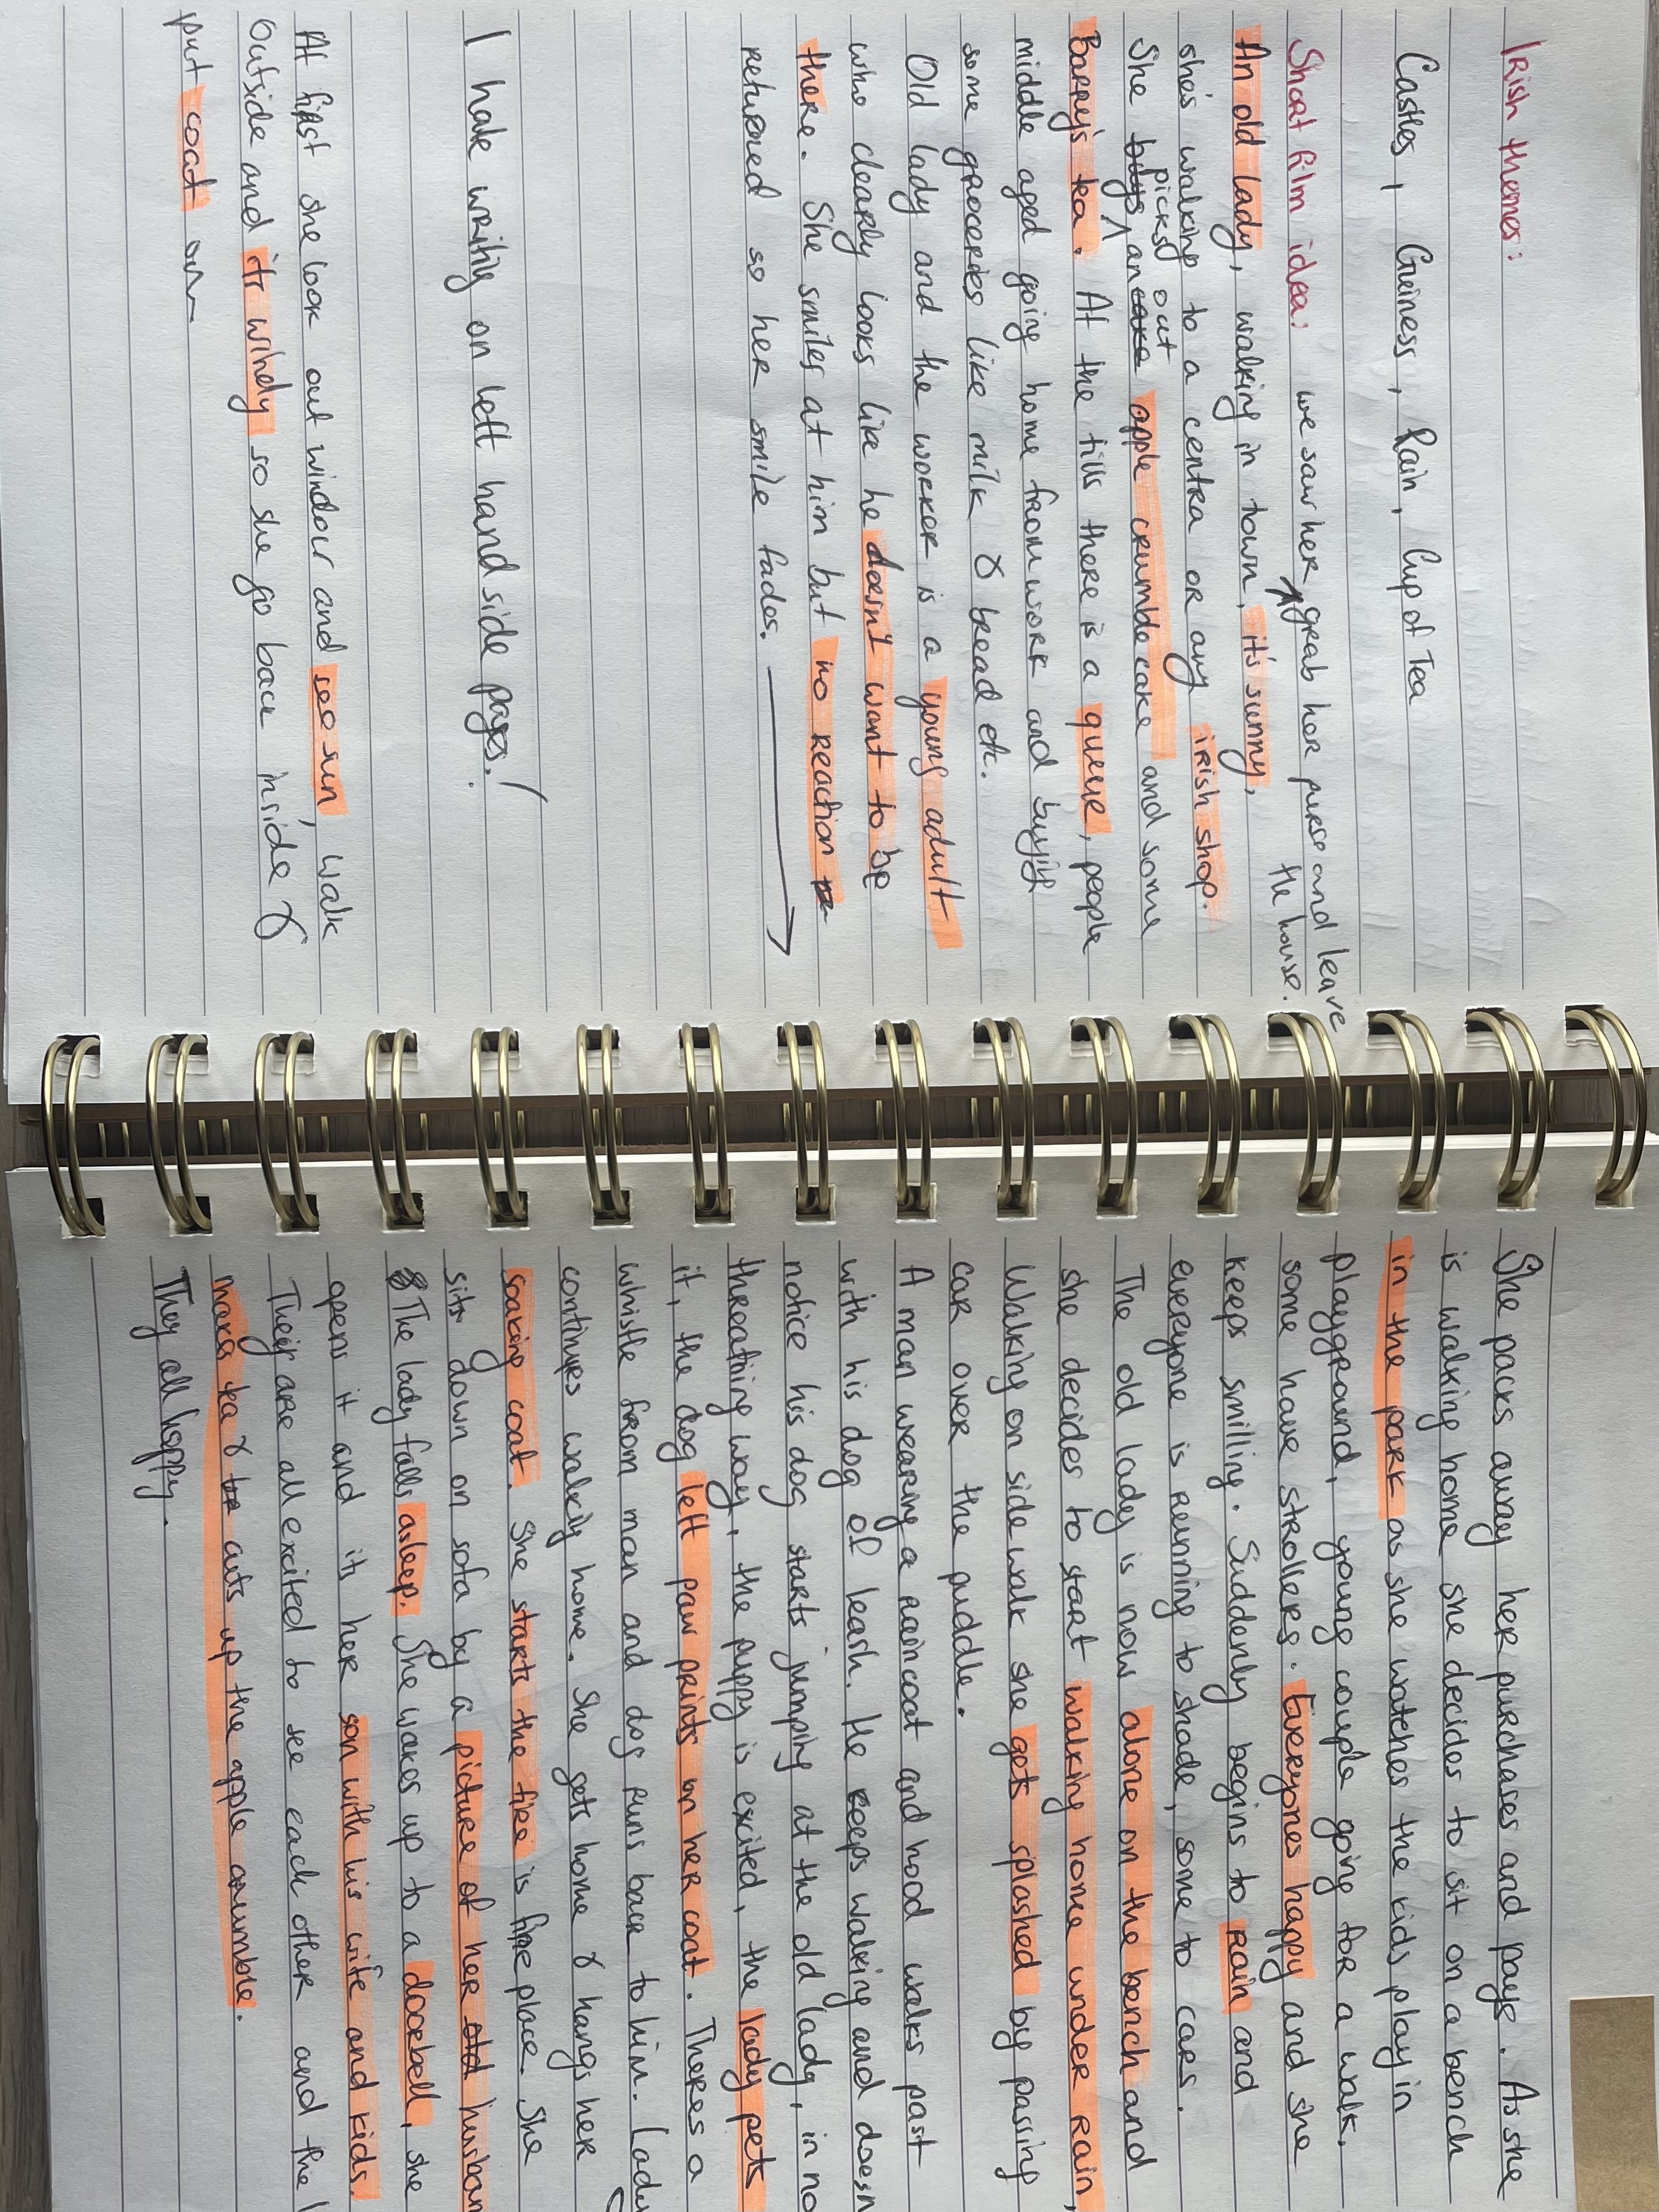 Irish themes:
Castles, Guiness, Rain, Cup of Tea
Short film idea: we saw her grab her purse and leave
the house.
An old lady, walking in town, it's sunny,
she's walking to a centra or any irish shop.
picks out
She buys an cake apple crumble cake and some
Barry's tea. At the tills there is a queue, people
middle aged going home from work and buying
some groceries like milk & bread etc.
Old lady and the worker is a young adult
who clearly looks like he doesn't want to be
there. She smiles at him but no reaction
returned so her smile fades.
I hate writing on left hand side pages!
At first she look out windour and see sun, walk
outside and it's windy so she go back inside &
put coat on
She packs away her purchases and pays. As she
is walking home she decides to sit on a bench
in the park as she watches the kids play in
playground, young couple going for a walk,
some have strollers. Everyones happy and she
keeps smiling. Suddenly begins to rain and
everyone is running to shade, some to cars.
The old lady is now alone on the bench and
she decides to start walking home under rain,
Walking on side walk she gets splashed by passing
car over the puddle.
A man wearing a raincoat and hood walks past
with his dog of leash. He keeps walking and doesn
notice his dog starts jumping at the old lady, in no
threatning way, the puppy is excited, the lady pets
it, the dog left paw prints on her coat. Theres a
whistle from man and dog runs back to him. Lady
continues walking home. She gets home & hangs her
soaking coat. She starts the fire is fire place. She
sits down on sofa by a picture of her old husban
The lady falls asleep. She wakes up to a doorbell, she
opens it and its her son with his wife and kids.
Their are all excited to see each other and the l
makes tea & cuts up the apple crumble.
They all happy.